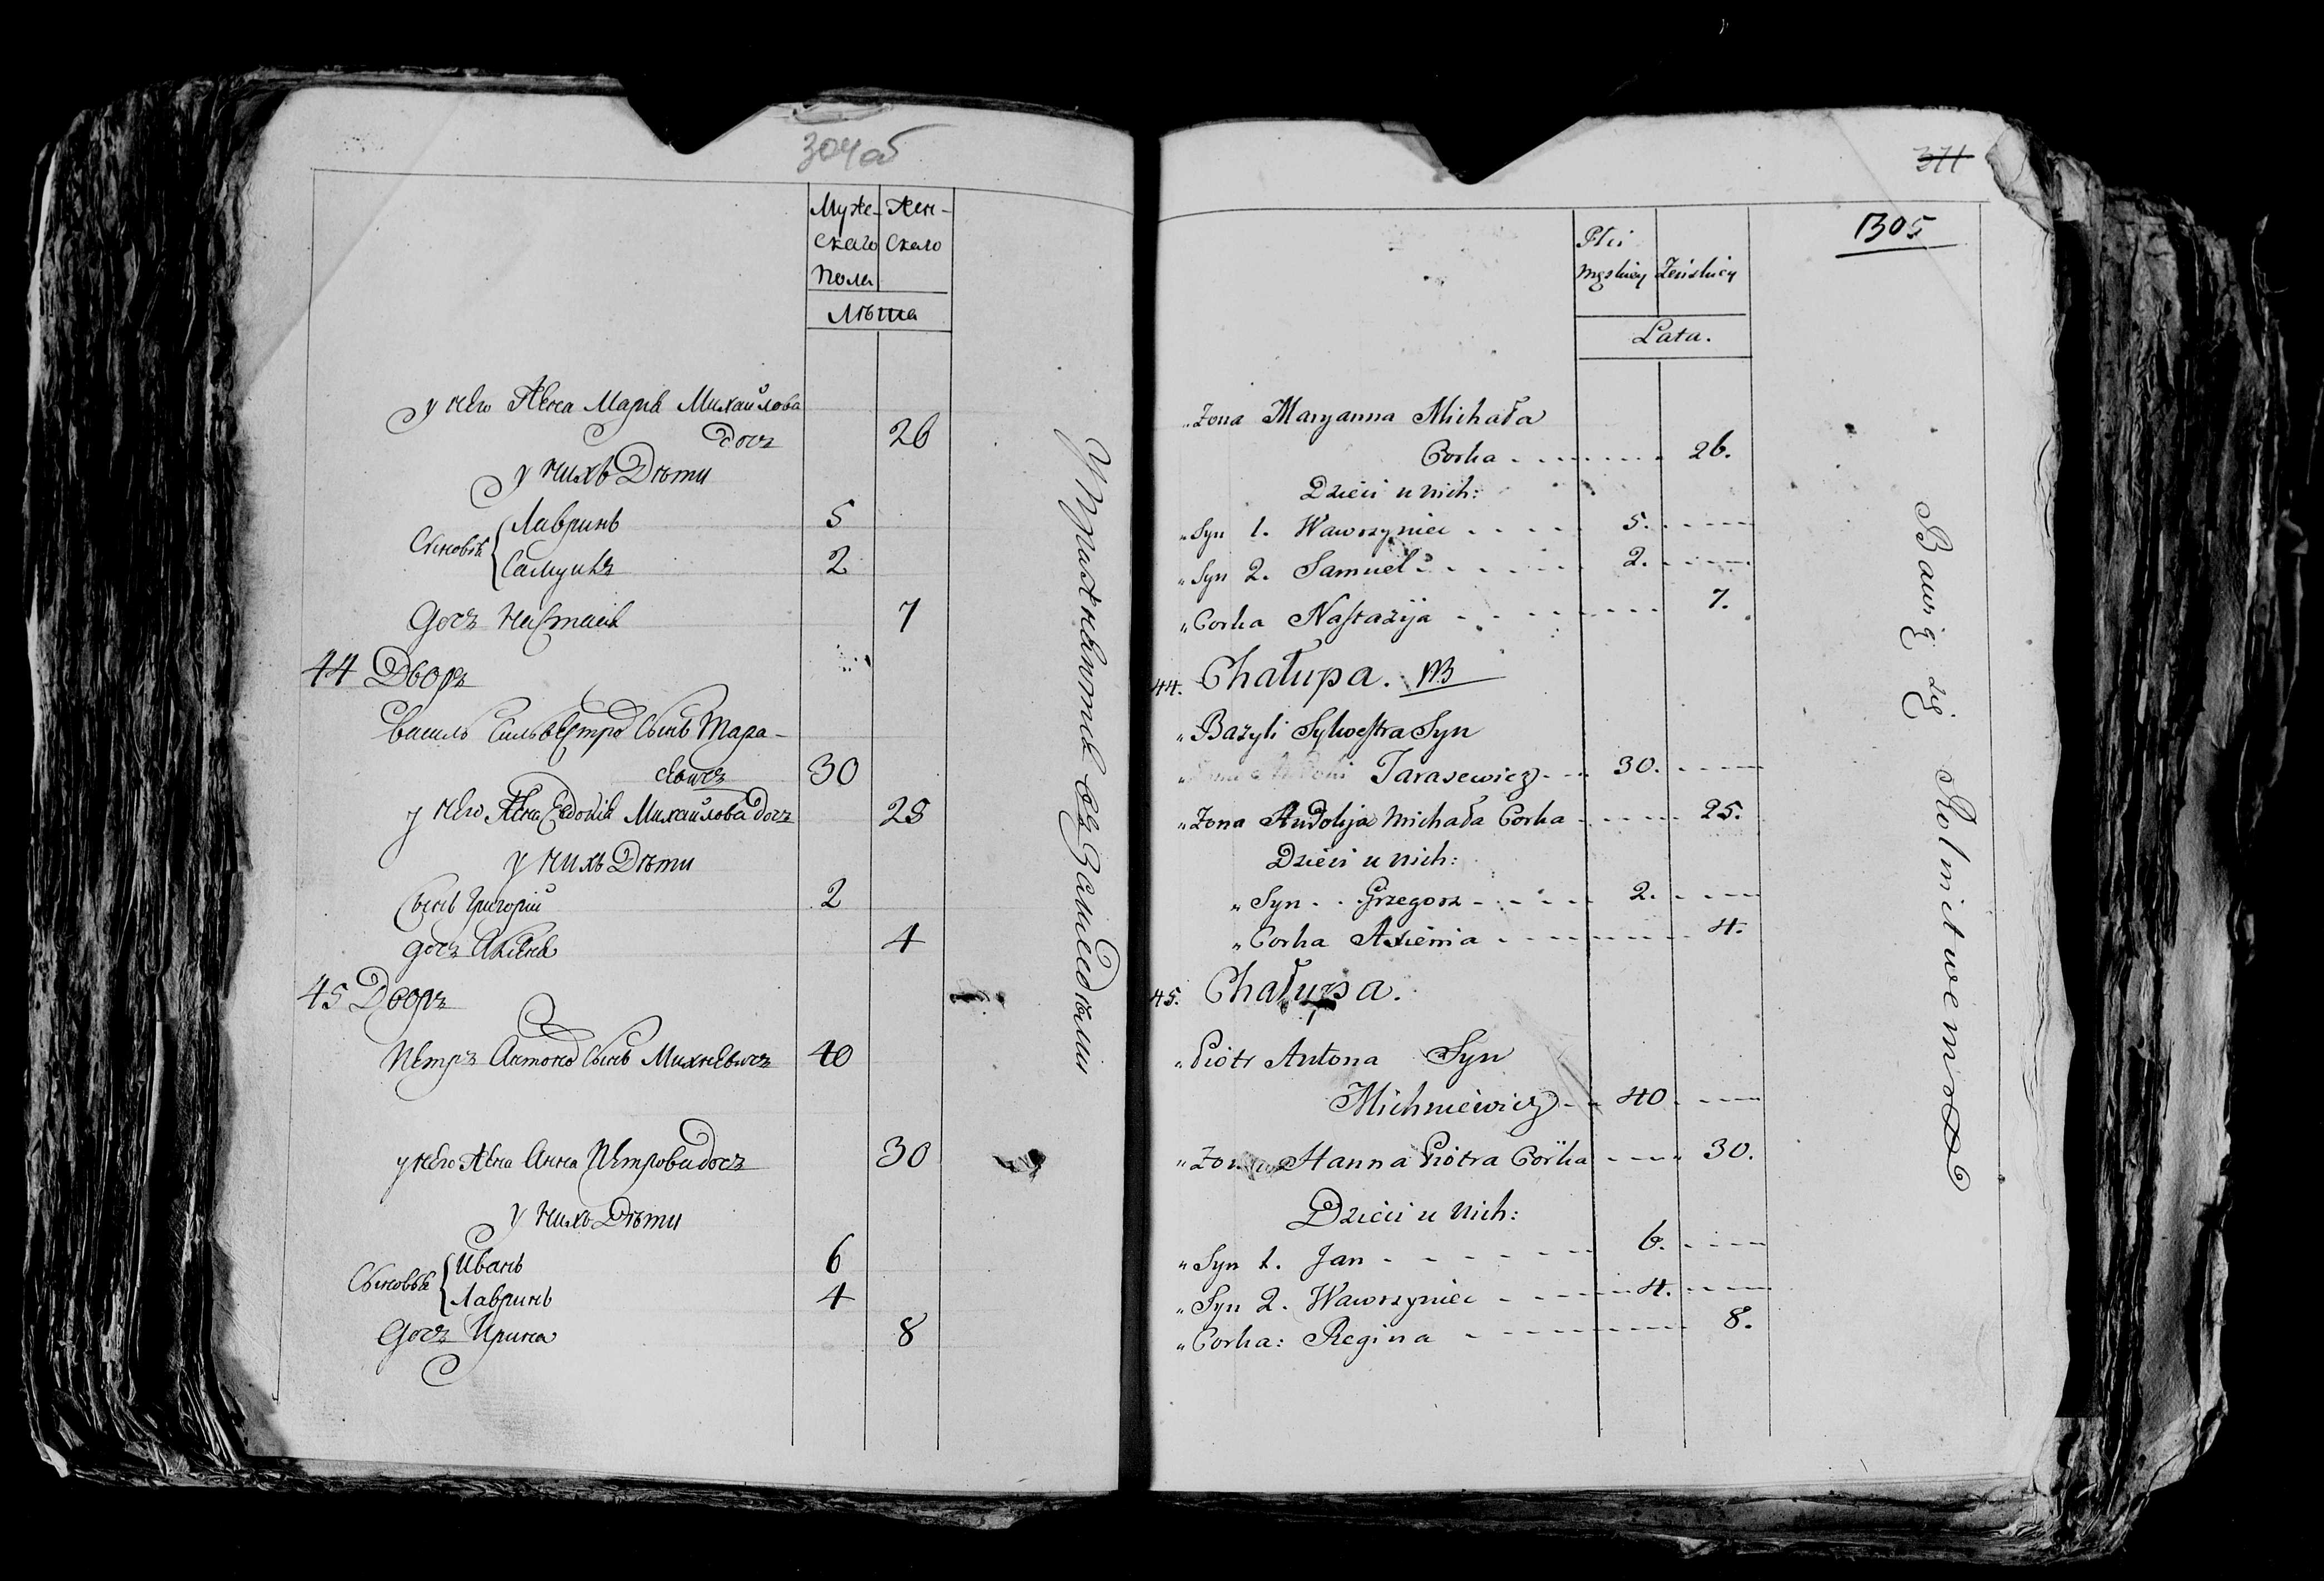 304об
Муже- Жен-
скаго скаго
пола
Лѣта
у него Жена Марiя Михайлова
дочь 26
у нихъ Дѣти
Сыновья Лавринъ 5
Самуилъ 2
дочь Настасiя 7
44 Дворъ
Василь Сильвестровъ Сынъ Тара-
севичъ 30
у него Жена Евдокiя Михайлова дочь 25
у нихъ Дѣти
Сынъ Григорiй 2
дочь Аксенiя 4
45 Дворъ
Петръ Антоновъ Сынъ Михневичъ 40
у него Жена Анна Петрова дочь 30
у нихъ Дѣти
Сыновья Иванъ 6
Лавринъ 4
дочь Ирина 8
Упражняются въ Замледѣлии
311
1305
Płci
męskiey Żeńskiey
Lata.
„Zona Maryanna Michała
Corka 26.
Dzieci u nich:
„Syn 1. Wawrzyniec 5.
„Syn 2. Samuel 2.
„Corka Nastazija 7.
44. Chałupa.
„Bazyli Sylwestra Syn
Tarasewicz 30.
„Zona Audokija Michała Corka 25.
Dzieci u nich:
„Syn Grzegorz 2.
„Corka Axienia 4.
45. Chałupa.
„Piotr Antona Syn
Michniewicz 40
„Zona Hanna Piotra Corka 30.
Dzieci u nich:
„Syn 1. Jan 6.
„Syn 2. Wawrzyniec 4.
„Corka: Regina 8.
Bawią się Rolnitwem